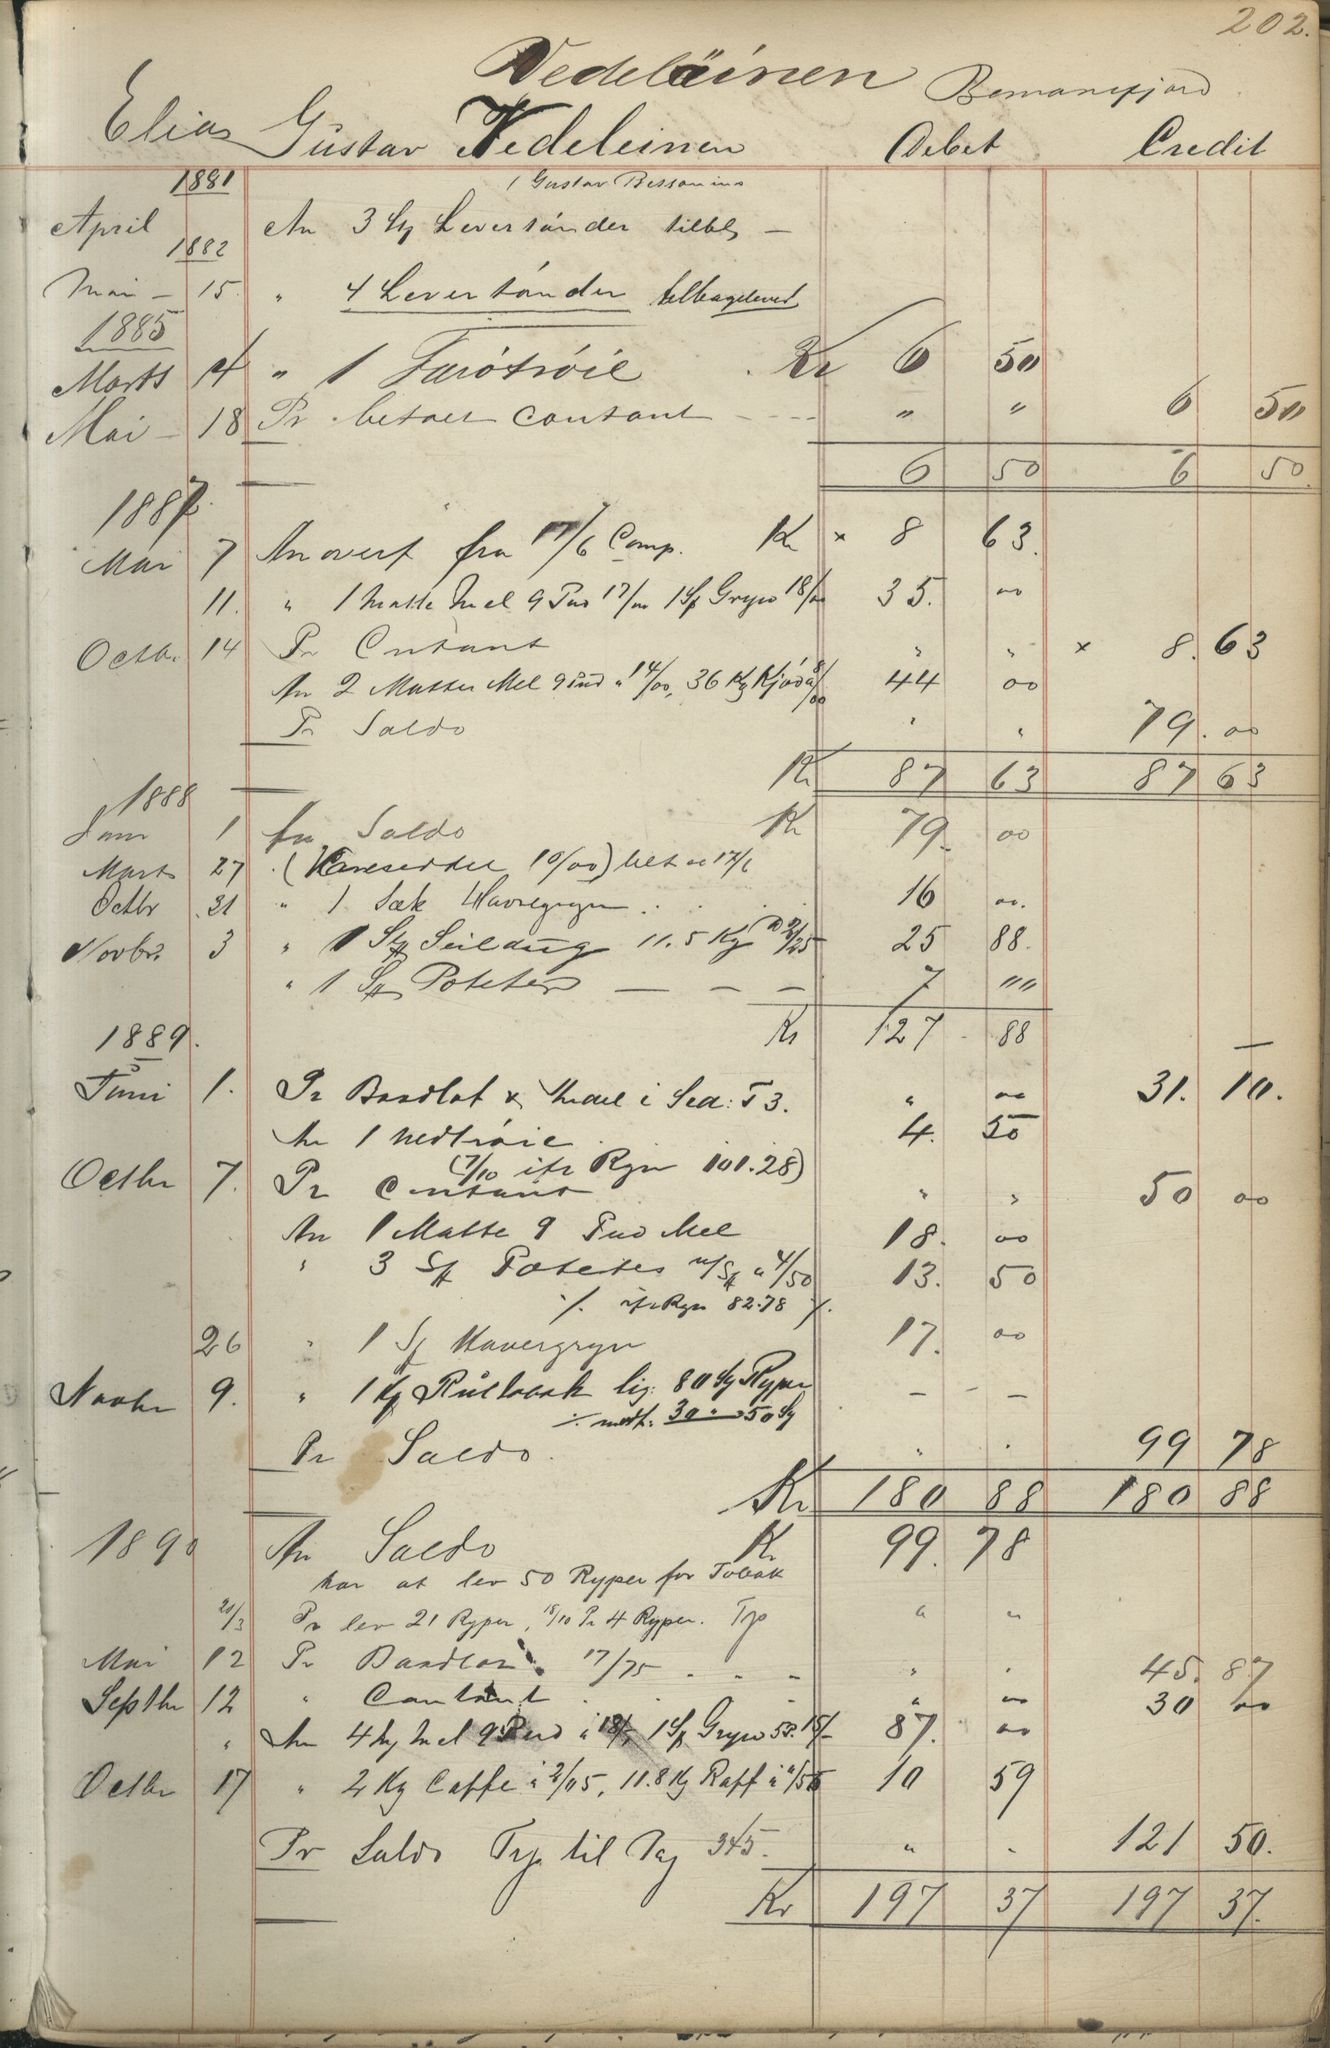 202.
Vedeleinen Bomansfjord
Elias Gustav Vedeleinen Debet Credit
1881 / Gustav Bessonins
April An 3 Levertönder tilbl —
1882
Mai — 15 " 4 Levertönder tilbagelevert
1885
Marts 14 " 1 Færötröie Kr 6 50
Mai — 18 Pr betalt contant " " 6 50
6 50 6 50
1887
Mai 7 An overf fra 17/6 Comp. Kr × 8 63
11. " 1 Matte Mel 9 Pud 17/00 1 Sk Gryn 18/00 35. 00
Octb. 14 Pr Contant " " × 8. 63
An 2 Matter Mel 9 Pud a 14/00, 36 Kg Kjöd 44 00
Pr Saldo " " 79. 00
Kr 87 63 87 63
1888
Janu 1 An Saldo Kr 79. 00
Marts 27 (Vareseddel 10/00) 17/6
Octbr 31 " 1 Sæk Havregryn 16 00.
Novbr. 3 " 1 Seildug 11.5 Kg a 2/25 25 88.
" 1 Poteter — — — 7 " "
Kr 127 88
1889.
Juni 1. Pr Baadlot i Sea: T 3. " 00 31. 10.
An 1 Nedtröie 4. 50
(7/10 ifr Rgn 101.28)
Octbr 7. Pr Contant " " 50 00
An 1 Matte 9 Pud Mel 18. 00
" 3 Poteter a 4/50 13. 50
./. ifr Rgn 82.78 ./.
26 " 1 Havregryn 17. 00
Novbr 9. " 1 Kg Rultobak lig: 80 Ryper — — —
30 50
Pr Saldo. " " 99 78
Kr 180 88 180 88
1890 An Saldo Kr 99. 78
har at lev 50 Ryper for Tobak
21/3 Pr lev 21 Ryper, 18/10 Pr 4 Ryper. Trp " "
Mai 12 Pr Baadlot 17/75 " " 45. 87
Septbr 12 " Contant " 00 30 00
" An 4 Mel 9 Pud a 18/, 1 Gryn 5 P. 15/— 87. 00
Octbr 17 " 2 Kg Caffe a 2/05, 11.8 Kg Raff a "/55 10 59
Pr Saldo Trp til Pag 345. " " 121 50.
Kr 197 37 197 37.